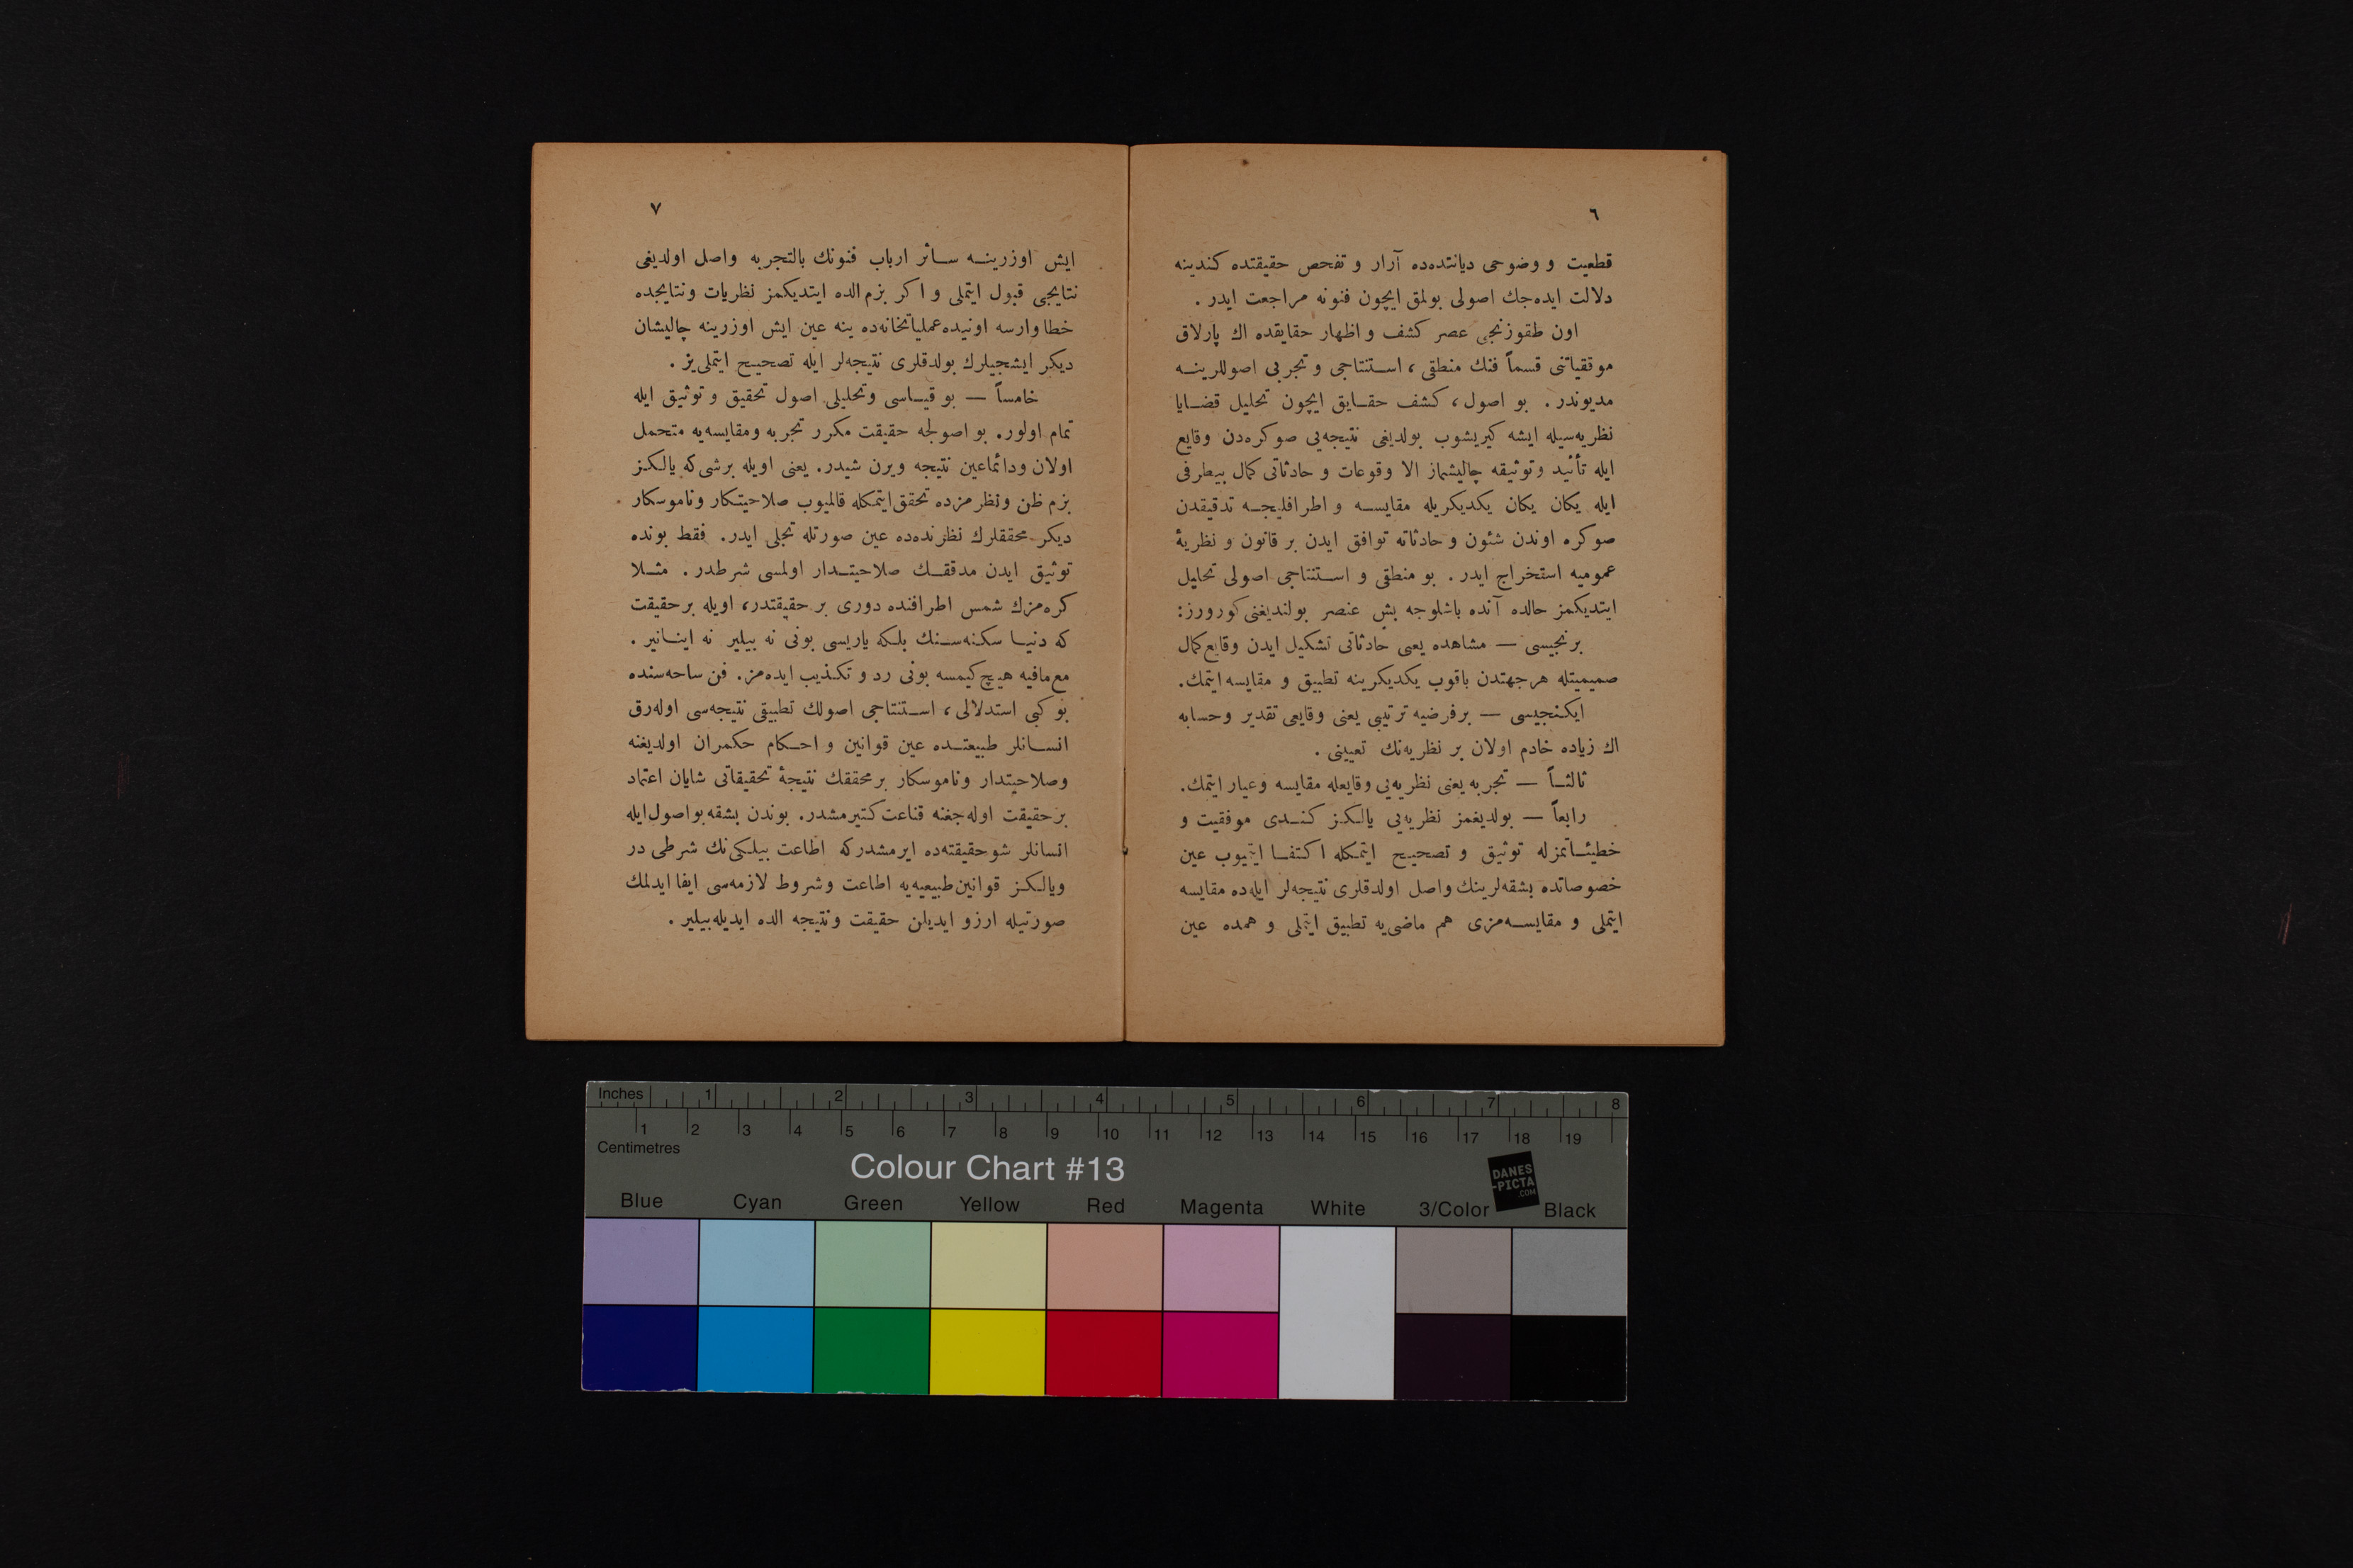 ٦
قطعیت و وضوحی دیانتده‌ده آرار و تفحص حقیقتده کندینه
دلالت ایده‌جك اصولی بولمق ایچون فنونه مراجعت ایدر .
اون طقوزنجی عصر کشف و اظهار حقایقده اك پارلاق
موفقیاتنی قسماً فنك منطقی ، استنتاجی و تجربی اصوللرینه
مدیوندر . بو اصول ، کشف حقایق ایچون تحلیل قضایا
نظریه‌سیله ایشه کیریشوب بولدیغی نتیجه‌یی صوکره‌دن وقایع
ایله تأئید وتوثیقه چالیشماز الا وقوعات و حادثاتی کمال بیطرفی
ایله یکان یکان یکدیکریله مقایسه و اطرافلیجه تدقیقدن
صوکره اوندن شئون و حادثاته توافق ایدن بر قانون و نظریۀ
عمومیه استخراج ایدر . بو منطقی و استنتاجی اصولی تحلیل
ایتدیکمز حالده آنده باشلوجه بش عنصر بولندیغنی کورورز :
برنجیسی — مشاهده یعنی حادثاتی تشکیل ایدن وقایع کمال
صمیمیتله هرجهتدن باقوب یکدیکرینه تطبیق و مقایسه ایتمك .
ایکنجیسی — برفرضیه ترتیبی یعنی وقایعی تقدیر وحسابه
اك زیاده خادم اولان بر نظریه‌نك تعیینی .
ثالثاً — تجربه یعنی نظریه‌یی وقایعله مقایسه وعیار ایتمك .
رابعاً — بولدیغمز نظریه‌یی یالکز کندی موفقیت و
خطیئاتمزله توثیق و تصحیح ایتمکله اکتفا ایتمیوب عین
خصوصاتده بشقه‌لرینك واصل اولدقلری نتیجه‌لر ایله‌ده مقایسه
ایتملی و مقایسه‌مزی هم ماضی‌یه تطبیق ایتملی و همده عین
٧
ایش اوزرینه سائر ارباب فنونك بالتجربه واصل اولدیغی
نتایجی قبول ایتملی و اکر بزم الده ایتدیکمز نظریات ونتایجده
خطا وارسه اونیده عملیاتخانه‌ده ینه عین ایش اوزرینه چالیشان
دیکر ایشجیلرك بولدقلری نتیجه‌لر ایله تصحیح ایتملی‌یز .
خامساً — بو قیاسی وتحلیلی اصول تحقیق و توثیق ایله
تمام اولور. بو اصولجه حقیقت مکرر تجربه ومقایسه‌یه متحمل
اولان ودائماعین نتیجه ویرن شیدر. یعنی اویله برشی که یالکز
بزم ظن ونظرمزده تحقق ایتمکله قالمیوب صلاحیتکار وناموسکار
دیکر محققلرك نظرنده‌ده عین صورتله تجلی ایدر. فقط بونده
توثیق ایدن مدققك صلاحیتدار اولمسی شرطدر . مثلا
کره‌مزك شمس اطرافنده دوری بر حقیقتدر، اویله برحقیقت
که دنیا سکنه‌سنك بلکه یاریسی بونی نه بیلیر نه اینانیر .
مع مافیه هیچ کیمسه بونی رد و تکذیب ایده‌مز. فن ساحه‌سنده
بو کبی استدلالی ، استنتاجی اصولك تطبیقی نتیجه‌سی اوله‌رق
انسانلر طبیعتده عین قوانین و احکام حکمران اولدیغنه
وصلاحیتدار وناموسکار برمحققك نتیجۀ تحقیقاتی شایان اعتماد
برحقیقت اوله‌جغنه قناعت کتیرمشدر. بوندن بشقه بو اصول ایله
انسانلر شوحقیقته‌ده ایرمشدرکه اطاعت بیلکی‌نك شرطی در
ویالکز قوانین طبیعیه‌یه اطاعت وشروط لازمه‌سی ایفا ایدلمك
صورتیله ارزو ایدیلن حقیقت ونتیجه الده ایدیله‌بیلیر .
Inches 1 2 3 4 5 6 7 8
1 2 3 4 5 6 7 8 9 10 11 12 13 14 15 16 17 18 19
Centimetres
Colour Chart #13
DANES
-PICTA
.COM
Blue Cyan Green Yellow Red Magenta White 3/Color Black